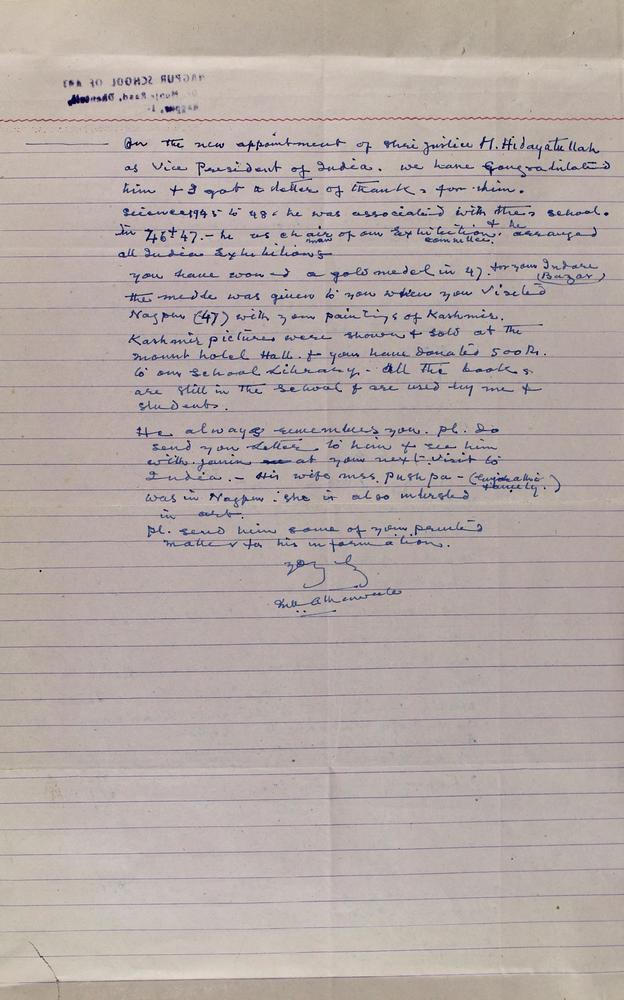 NAGPUR SCHOOL OF ART
Road, Dhantoli,
Nagpur, 1.
On the new appointment of Shri Justice M. Hidayatullah
as Vice President of India. we have Congradulated
him & I got a letter of thanks for him.
Science 1945 to 48. he was associated with the school.
In 46+47. - he as chairman of our Exhibition committee. & he arranged
all India Exhibitions
you have won a gold medel in 47. for your Indore (Bazar)
the medle was given to you when you visited
Nagpur (47) with your paintings of Kashmir.
Kashmir pictures were shown & sold at the
mount hotel Hall. & you have Donated 500 Rs.
to our School Library - All the books
are still in the School & are used by me &
students.
He always remembers you. pl. do
send you Letter to him & see him
with at your next visit to
India. - His wife mrs. Pushpa - family.)
was in Nagpur. she is also intersted
in art.
pl. send him some of your printed
matter for his information.